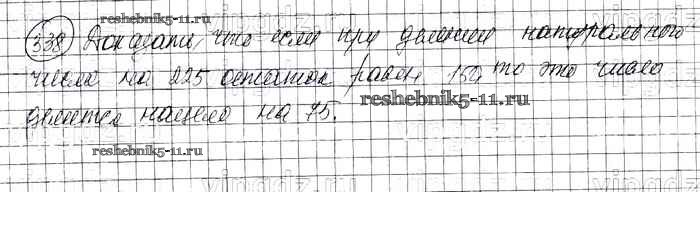 reshebnik5-11.ru
338 Доказать, что если при делении натурального
числа на 225 остаток равен 150, то это число
reshebnik5-11.ru
делится нацело на 75.
reshebnik5-11.ru